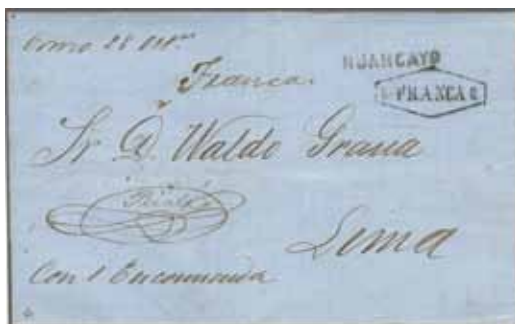 28
HUANCAYO
Franca.
FRANCA
Sr. D. Waldo Graña
Lima
Con 1 Encomienda